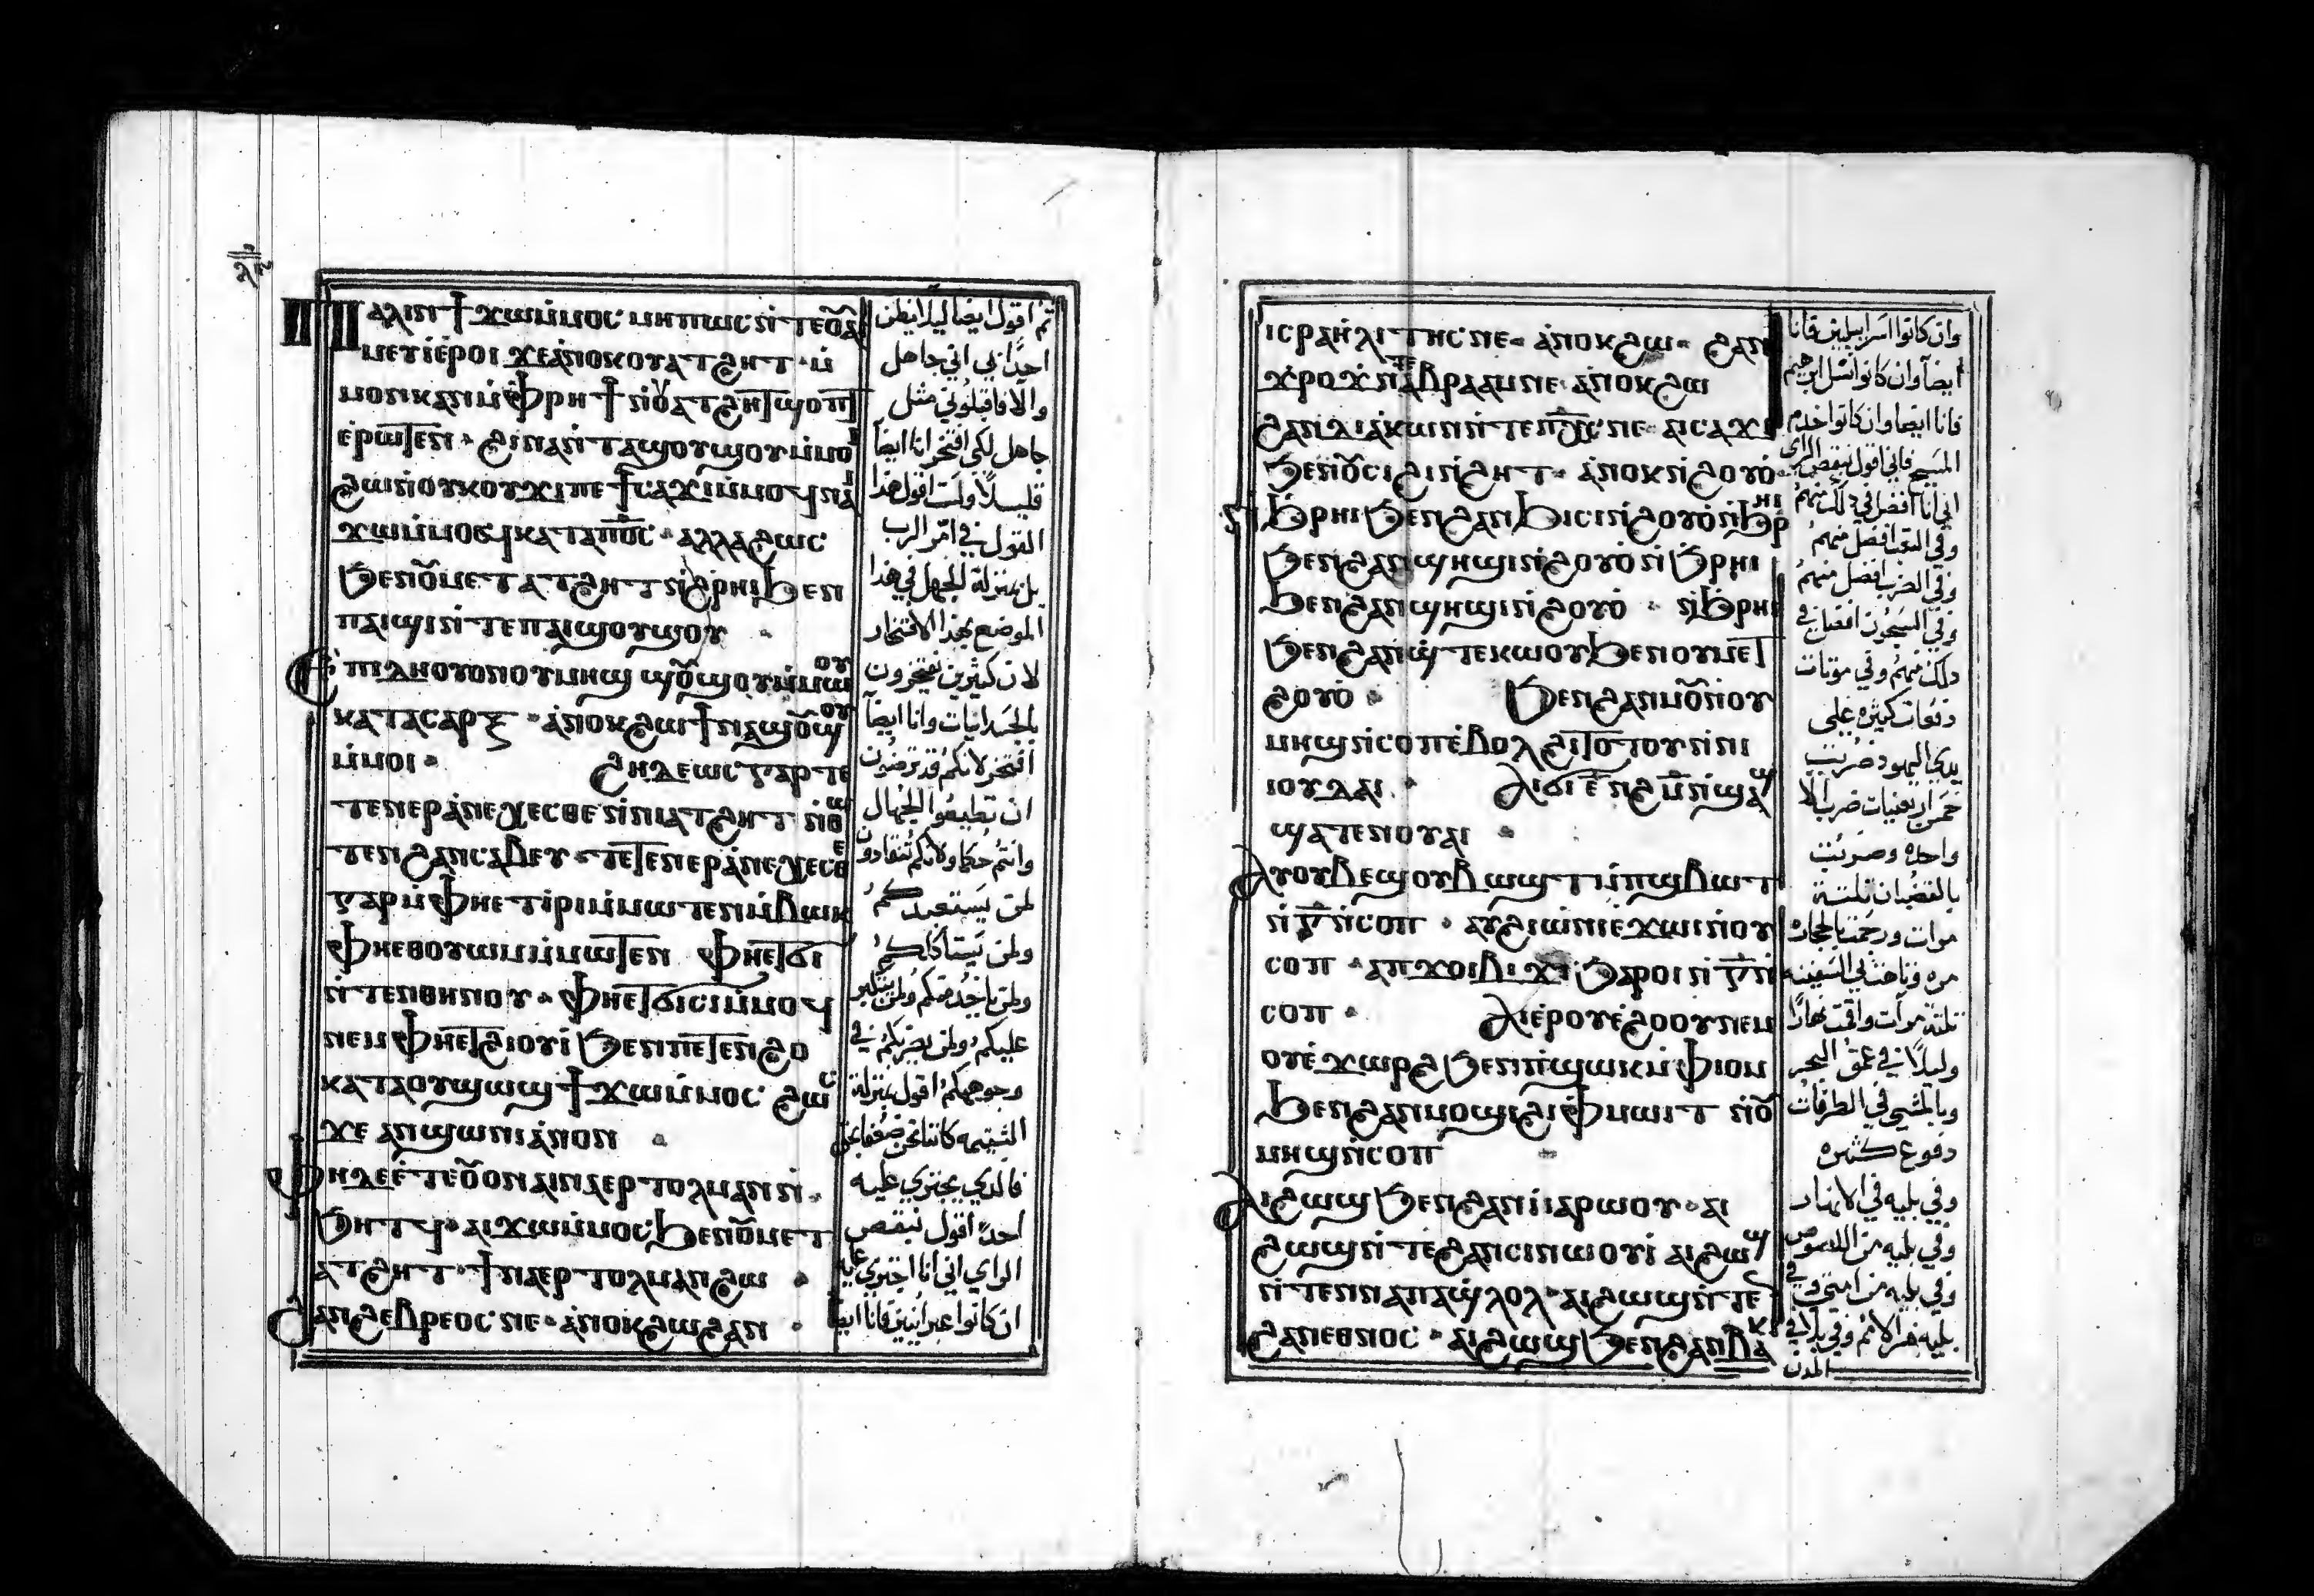 ⲡⲁⲗⲓⲛ ϯϫⲱⲙⲙⲟⲥ ⲙⲏⲡⲱⲥ ⲛ̀ⲧⲉⲟⲩⲁⲓ
ⲙⲉⲩⲓ̀ⲉ̀ⲣⲟⲓ ϫⲉⲁⲛⲟⲕⲟⲩⲁⲧϩⲏⲧ · ⲙ̀
ⲙⲟⲛⲕⲁⲛ ⲙ̀ⲫⲣⲏϯ ⲛ̀ⲟⲩⲁⲧϩⲏⲧ ϣⲟⲡⲧ
ⲉ̀ⲣⲱⲧⲉⲛ · ϩⲓⲛⲁ ⲛ̀ⲧⲁϣⲟⲩϣⲟⲩ ⲙ̀ⲙⲟⲓ
ϩⲱ ⲛ̀ⲟⲩⲕⲟⲩϫⲓ ⲡⲉϯⲥⲁϫⲓ ⲙ̀ⲙⲟϥ ⲛⲁⲓ
ϫⲱ ⲙ̀ⲙⲟϥ ⲕⲁⲧⲁ ⲡⲟⲥ · ⲁⲗⲗⲁ ϩⲱⲥ
ϧⲉⲛⲟⲩⲙⲉⲧⲁⲧϩⲏⲧ ⲛ̀ϩⲣⲏⲓ ϧⲉⲛ
ⲡⲁⲓϣⲓ ⲛ̀ⲧⲉⲡⲁⲓϣⲟⲩϣⲟⲩ
ⲉ̀ⲡⲓⲇⲏ ⲟⲩⲟⲛ ⲟⲩⲙⲏϣ ϣⲟⲩϣⲟⲩ ⲙ̀ⲙⲱⲟⲩ
ⲕⲁⲧⲁⲥⲁⲣⲝ · ⲁ̀ⲛⲟⲕ ϩⲱ ϯⲛⲁϣⲟⲩϣⲟⲩ
ⲙ̀ⲙⲟⲓ · ϩⲏⲇⲉⲱⲥ ⲅⲁⲣ ⲧⲉ
ⲧⲉⲛⲉⲣⲁ̀ⲛⲉⲭⲉⲥⲑⲉ ⲛ̀ⲛⲓⲁⲧϩⲏⲧ ⲛ̀ⲑⲱ
ⲧⲉⲛ ϩⲁⲛⲥⲁⲃⲉⲩ · ⲧⲉⲧⲉⲛⲉⲣⲁ̀ⲛⲉⲭⲉⲥⲑⲉ
ⲅⲁⲣ ⲙ̀ⲫⲏⲉⲧⲓⲣⲓ ⲙ̀ⲙⲱⲧⲉⲛ ⲙ̀ⲃⲱⲕ
ⲫⲏⲉⲑⲟⲩⲱⲙ ⲙ̀ⲙⲱⲧⲉⲛ ⲫⲏⲉⲧϭⲓ
ⲛ̀ⲧⲉⲛⲑⲏⲛⲟⲩ · ⲫⲏⲉⲧϭⲓⲥⲓ ⲙ̀ⲙⲟϥ
ⲛⲉⲙ ⲫⲏⲉⲧϩⲓⲟⲩⲓ̀ ϧⲉⲛⲡⲉⲧⲉⲛϩⲟ
ⲕⲁⲧⲁⲟⲩϣⲱϣ ϯϫⲱ ⲙ̀ⲙⲟⲥ ϩⲱⲥ
ϫⲉ ⲁⲛϣⲱⲛⲓ ⲁ̀ⲛⲟⲛ
ⲫⲏⲇⲉ ⲉ̀ⲧⲉⲟⲩⲟⲛ ⲛⲁⲉⲣⲧⲟⲗⲙⲁⲛ ⲛ̀
ϧⲏⲧϥ · ⲁⲓϫⲱ ⲙ̀ⲙⲟⲥ ϧⲉⲛⲟⲩⲙⲉⲧ
ⲁⲧϩⲏⲧ · ϯⲛⲁⲉⲣⲧⲟⲗⲙⲁⲛ ϩⲱ
ϩⲁⲛϩⲉⲃⲣⲉⲟⲥ ⲛⲉ · ⲁ̀ⲛⲟⲕϩⲱ ϩⲁⲛ
ثم اقول ايضا ليلا يظن
احدًا بي اني جاهل
والا فاقبلوني مثل
جاهل لكى افتخر انا ايضاً
قليلاً ولست اقول هذا
القول في امر الرب
بل بمنزلة الجهل في هذا
الموضع بهذا الافتخار
لان كثيرين يفتخرون
بالجسدانيات وانا ايضاً
افتخر لانكم قد ترضون
ان تطيعوا الجهال
وانتم حكما ولانكم تنقادون
لمن يستعبدكم
ولمن يستأكلكم
ولمن ياخذ منكم ولمن يتكبر
عليكم ولمن يضربكم في
وجوهكم اقول بمنزلة
الشتيمه كاننا نحن ضعفا
فالدي يجتري عليه
احدًا اقول بنقص
الراي اني انا اجتري عليه
ان كانوا عبرانيين فانا ايضاً
ⲓⲥⲣⲁⲏⲗⲓⲧⲏⲥ ⲛⲉ · ⲁ̀ⲛⲟⲕϩⲱ · ϩⲁⲛ
ϫⲣⲟϫ ⲛ̀ⲧⲉ ⲁⲃⲣⲁⲁⲙ ⲛⲉ · ⲁ̀ⲛⲟⲕϩⲱ
ϩⲁⲛⲇⲓⲁⲕⲱⲛ ⲛ̀ⲧⲉⲡⲭⲥ ⲛⲉ · ⲁⲓⲥⲁϫⲓ
ϧⲉⲛⲟⲩⲥⲓϩⲓⲛϩⲏⲧ · ⲁ̀ⲛⲟⲕ ⲛ̀ϩⲟⲩⲟ̀
ⲛ̀ϧⲣⲏⲓ ϧⲉⲛϩⲁⲛϧⲓⲥⲓ ⲛ̀ϩⲟⲩⲟ̀ ⲛ̀ϧⲣⲏⲓ
ϧⲉⲛϩⲁⲛϣⲏϣⲓ ⲛ̀ϩⲟⲩⲟ̀ ⲛ̀ϧⲣⲏⲓ
ϧⲉⲛϩⲁⲛϣⲏϣⲓ ⲛ̀ϩⲟⲩⲟ̀ · ⲛ̀ϧⲣⲏⲓ
ϧⲉⲛϩⲁⲛϣⲧⲉⲕⲱⲟⲩ ϧⲉⲛⲟⲩⲙⲉⲧ
ϩⲟⲩⲟ̀ · ϧⲉⲛϩⲁⲛⲙⲟⲩ ⲛ̀ⲟⲩ
ⲙⲏϣ ⲛ̀ⲥⲟⲡ ⲉ̀ⲃⲟⲗϩⲓⲧⲟⲧⲟⲩ ⲛ̀ⲛⲓ
ⲓⲟⲩⲇⲁⲓ · ⲁⲓϭⲓ ⲉ̅ ⲛ̀ϩⲙ̅ ⲛ̀ϣⲁϣ
ϣⲁⲧⲉⲛⲟⲩⲁⲓ
ⲁⲩⲟⲩⲃⲉϣⲟⲩⲃⲱϣⲧ ⲙ̀ⲡϣⲃⲱⲧ
ⲛ̀ⲅ̅ ⲛ̀ⲥⲟⲡ · ⲁⲩϩⲓⲱⲛⲓ ⲉϫⲱⲓ ⲛ̀ⲟⲩ
ⲥⲟⲡ · ⲁⲡϫⲟⲓ ⲃⲓϫⲓ ϧⲁⲣⲟⲓ ⲛ̀ⲅ̅ ⲛ̀
ⲥⲟⲡ · ⲁⲓⲉⲣⲟⲩⲉ̀ϩⲟⲟⲩ ⲛⲉⲙ
ⲟⲩⲉ̀ϫⲱⲣϩ ϧⲉⲛⲡ̀ϣⲱⲕ ⲙ̀ⲫⲓⲟⲙ
ϧⲉⲛϩⲁⲛⲙⲟϣⲓ ϩⲓⲫⲙⲱⲓⲧ ⲛ̀ⲟⲩ
ⲙⲏϣ ⲛ̀ⲥⲟⲡ
ⲁⲓϩⲱϣ ϧⲉⲛϩⲁⲛⲓⲁⲣⲱⲟⲩ · ⲁⲓ
ϩⲱϣ ⲛ̀ⲧⲉϩⲁⲛⲥⲓⲛⲱⲟⲩⲓ̀ ⲁⲓϩⲱϣ
ⲛ̀ⲧⲉⲛⲛⲁⲡⲁϣ̀ⲗⲟⲗ · ⲁⲓϩⲱϣ ⲛ̀ⲧⲉ
ϩⲁⲛⲉⲑⲛⲟⲥ · ⲁⲓϩⲱϣ ϧⲉⲛϩⲁⲛⲃⲁⲕⲓ
وان كانوا اسراييليين فانا
ايضاً وان كانوا نسل ابرهيم
فانا ايضا وان كانوا خدم
المسيح فاني اقول بنقص الراي
اني انا افضل في ذلك منهم
وفي التعب افضل منهم
وفي الضرب افضل منهم
وفي السجون افضل في
ذلك منهم وفي موتات
دفعات كثيره على
يدي اليهود ضربت
خمس اربعينيات ضربا الا
واحده وضربت
بالقضبان ثلثة
مرات ورجمت بالحجاره
مره وناخت بي السفينه
ثلثة مرات واقمت نهارًا
وليلاً في عمق البحر
وبالمشي في الطرقات
دفوع كثيره
وفي بليه في الانهار
وفي بليه من اللصوص
وفي بليه من امتي وفي
بليه من الامم وفي بلايا في
المدن